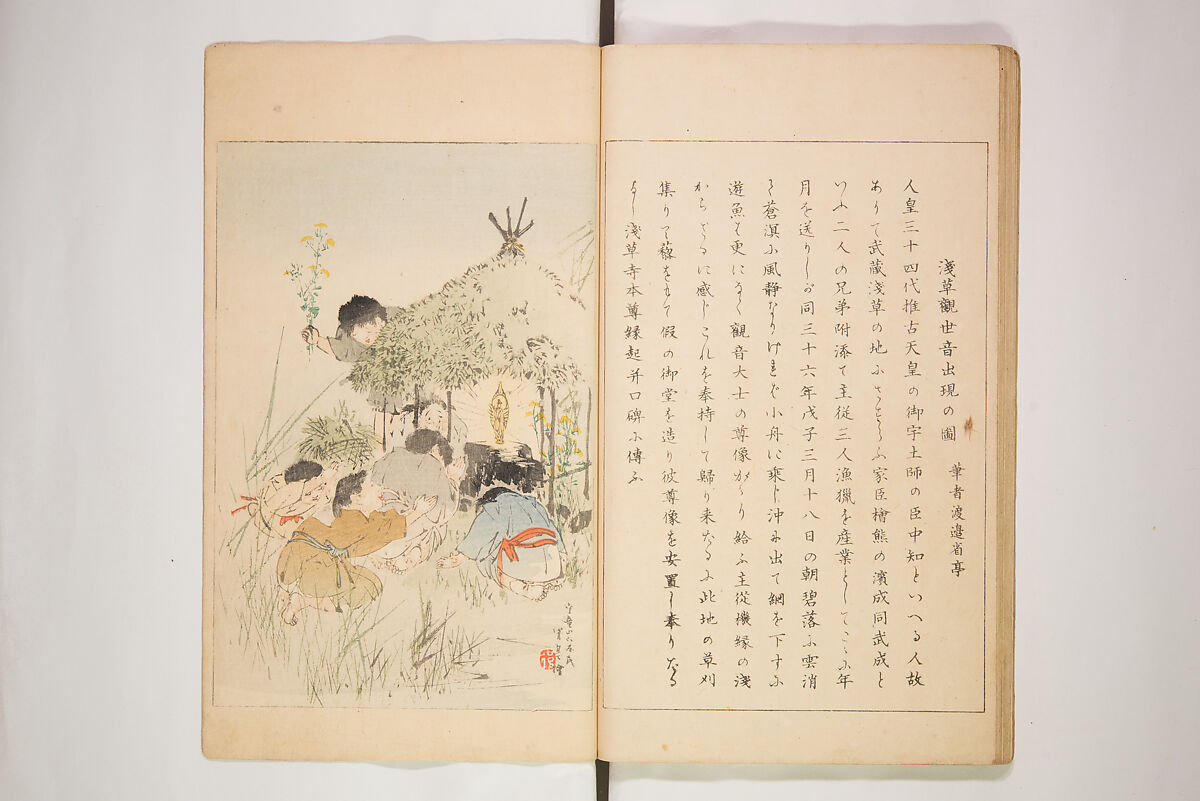 淺草觀世音出現の圖　筆者渡邉省亭
人皇三十四代推古天皇の御宇土師の臣中知といへる人故
ありて武藏淺草の地にさすらふ家臣檜熊の濱成同武成と
いふ二人の兄弟附添て主從三人漁獵を産業としてこゝに年
月を送りしが同三十六年戊子三月十八日の朝碧落に雲消
て蒼溟に風静なりければ小舟に乗じ沖に出て網を下すに
遊魚は更になく觀音大士の尊像かゝり給ふ主從機縁の淺
からざるに感じこれを奉持して歸り来たるに此地の草刈
集りて藜をもて假の御堂を造り彼尊像を安置し奉りたる
よし淺草寺本尊縁起并口碑に傳ふ